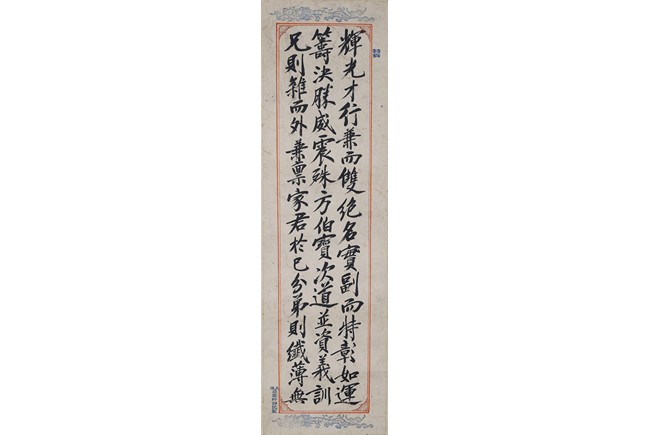 輝光才行兼而雙絕名實副而特彰如運
籌決勝威震殊方伯寶次道並資義訓
兄則雜而外兼稟家君於已分弟則纖薄無